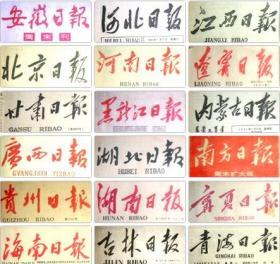 安徽日报
周末刊
河北日报
HEBEI RIBAO
江西日报
JIANGXI RIBAO
北京日报
河南日报
HENAN RIBAO
辽宁日报
LIAONING RIBAO
甘肃日报
GANSU RIBAO
黑龙江日报
内蒙古日报
廣西日報
GUANGXI RIBAO
湖北日报
HUBEI RIBAO
南方日报
周末扩大版
贵州日报
GUIZHOU RIBAO
湖南日报
HUNAN RIBAO
宁夏日报
NINGXIA RIBAO
海南日报
吉林日报
JILIN RIBAO
青海日报
QINGHAI RIBAO